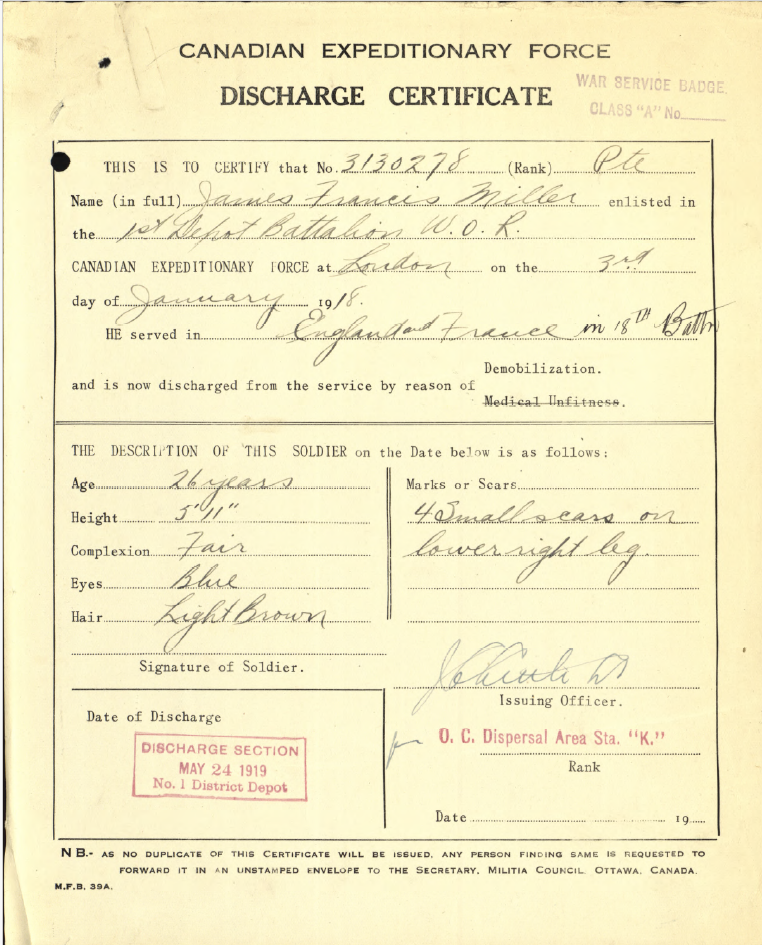 CANADIAN EXPEDITIONARY FORCE
DISCHARGE CERTIFICATE
WAR SERVICE BADGE
CLASS "A" No
THIS IS TO CERTIFY that No. 3130278 (Rank) Pte
Name (in full) James Francis Miller enlisted in
the 1st Depot Battalion W.O.R.
CANADIAN EXPEDITIONARY FORCE at London on the 3rd
day of January 1918.
HE served in England and France in 18TH Battn
Demobilization.
and is now discharged from the service by reason of
Medical Unfitness.
THE DESCRIPTION OF THIS SOLDIER on the Date below is as follows:
Age 26 years
Height 5' 11"
Complexion Fair
Eyes Blue
Hair Light Brown
Marks or Scars
4 Small scars on
lower right leg.
Signature of Soldier.
Issuing Officer.
Date of Discharge
DISCHARGE SECTION
MAY 24 1919
No. 1 District Depot
for O. C. Dispersal Area Sta. "K."
Rank
Date 19
NB.- AS NO DUPLICATE OF THIS CERTIFICATE WILL BE ISSUED, ANY PERSON FINDING SAME IS REQUESTED TO
FORWARD IT IN AN UNSTAMPED ENVELOPE TO THE SECRETARY, MILITIA COUNCIL, OTTAWA, CANADA.
M.F.B. 39A.